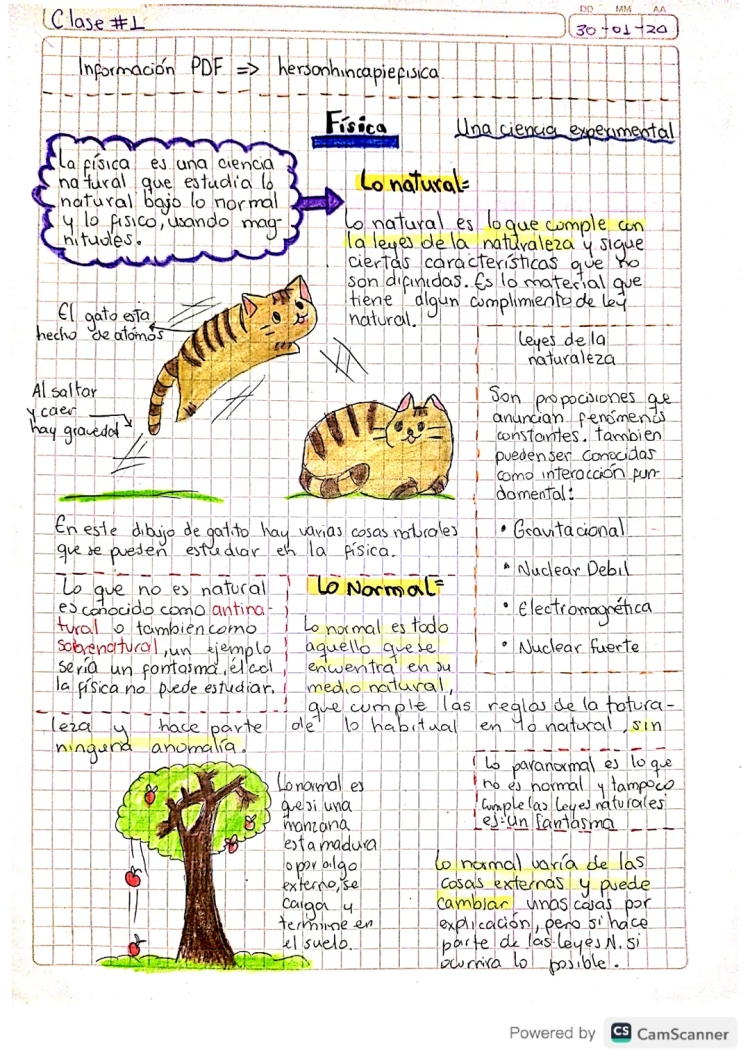 Clase #1
DD MM AA
30-01-20
Información PDF => hersonhincapiefisica
Física
Una ciencia experimental
La física es una ciencia
natural que estudia lo
natural bajo lo normal
y lo físico, usando mag-
nitudes.
Lo natural=
Lo natural es lo que cumple con
la leyes de la naturaleza y sigue
ciertas características que no
son difinidas. Es lo material que
tiene algun cumplimento de ley
natural.
El gato esta
hecho de atomos
Al saltar
y caer
hay gravedad
leyes de la
naturaleza
Son propocisiones que
anuncian fenómenos
constantes. tambien
pueden ser conocidas
como interacción fun-
damental:
• Gravitacional
• Nuclear Debil
• Electromagnética
• Nuclear fuerte
En este dibujo de gatito hay varias cosas naturales
que se pueden estudiar en la física.
Lo que no es natural
es conocido como antina-
tural o tambien como
sobrenatural, un ejemplo
sería un fantasma, el cal
la física no puede estudiar.
Lo Normal=
Lo normal es todo
aquello que se
encuentra en su
medio natural,
que cumple las reglas de la totura-
leza y hace parte de lo habitual en lo natural, sin
ninguna anomalía.
Lo paranormal es lo que
no es normal y tampoco
cumple las leyes naturales
ej: Un fantasma
Lo normal es
que si una
manzana
esta madura
o por algo
externo, se
caiga y
termine en
el suelo.
Lo normal varía de las
cosas externas y puede
cambiar unas cosas por
explicación, pero si hace
parte de las leyes N. si
ocurrira lo posible.
Powered by CS CamScanner